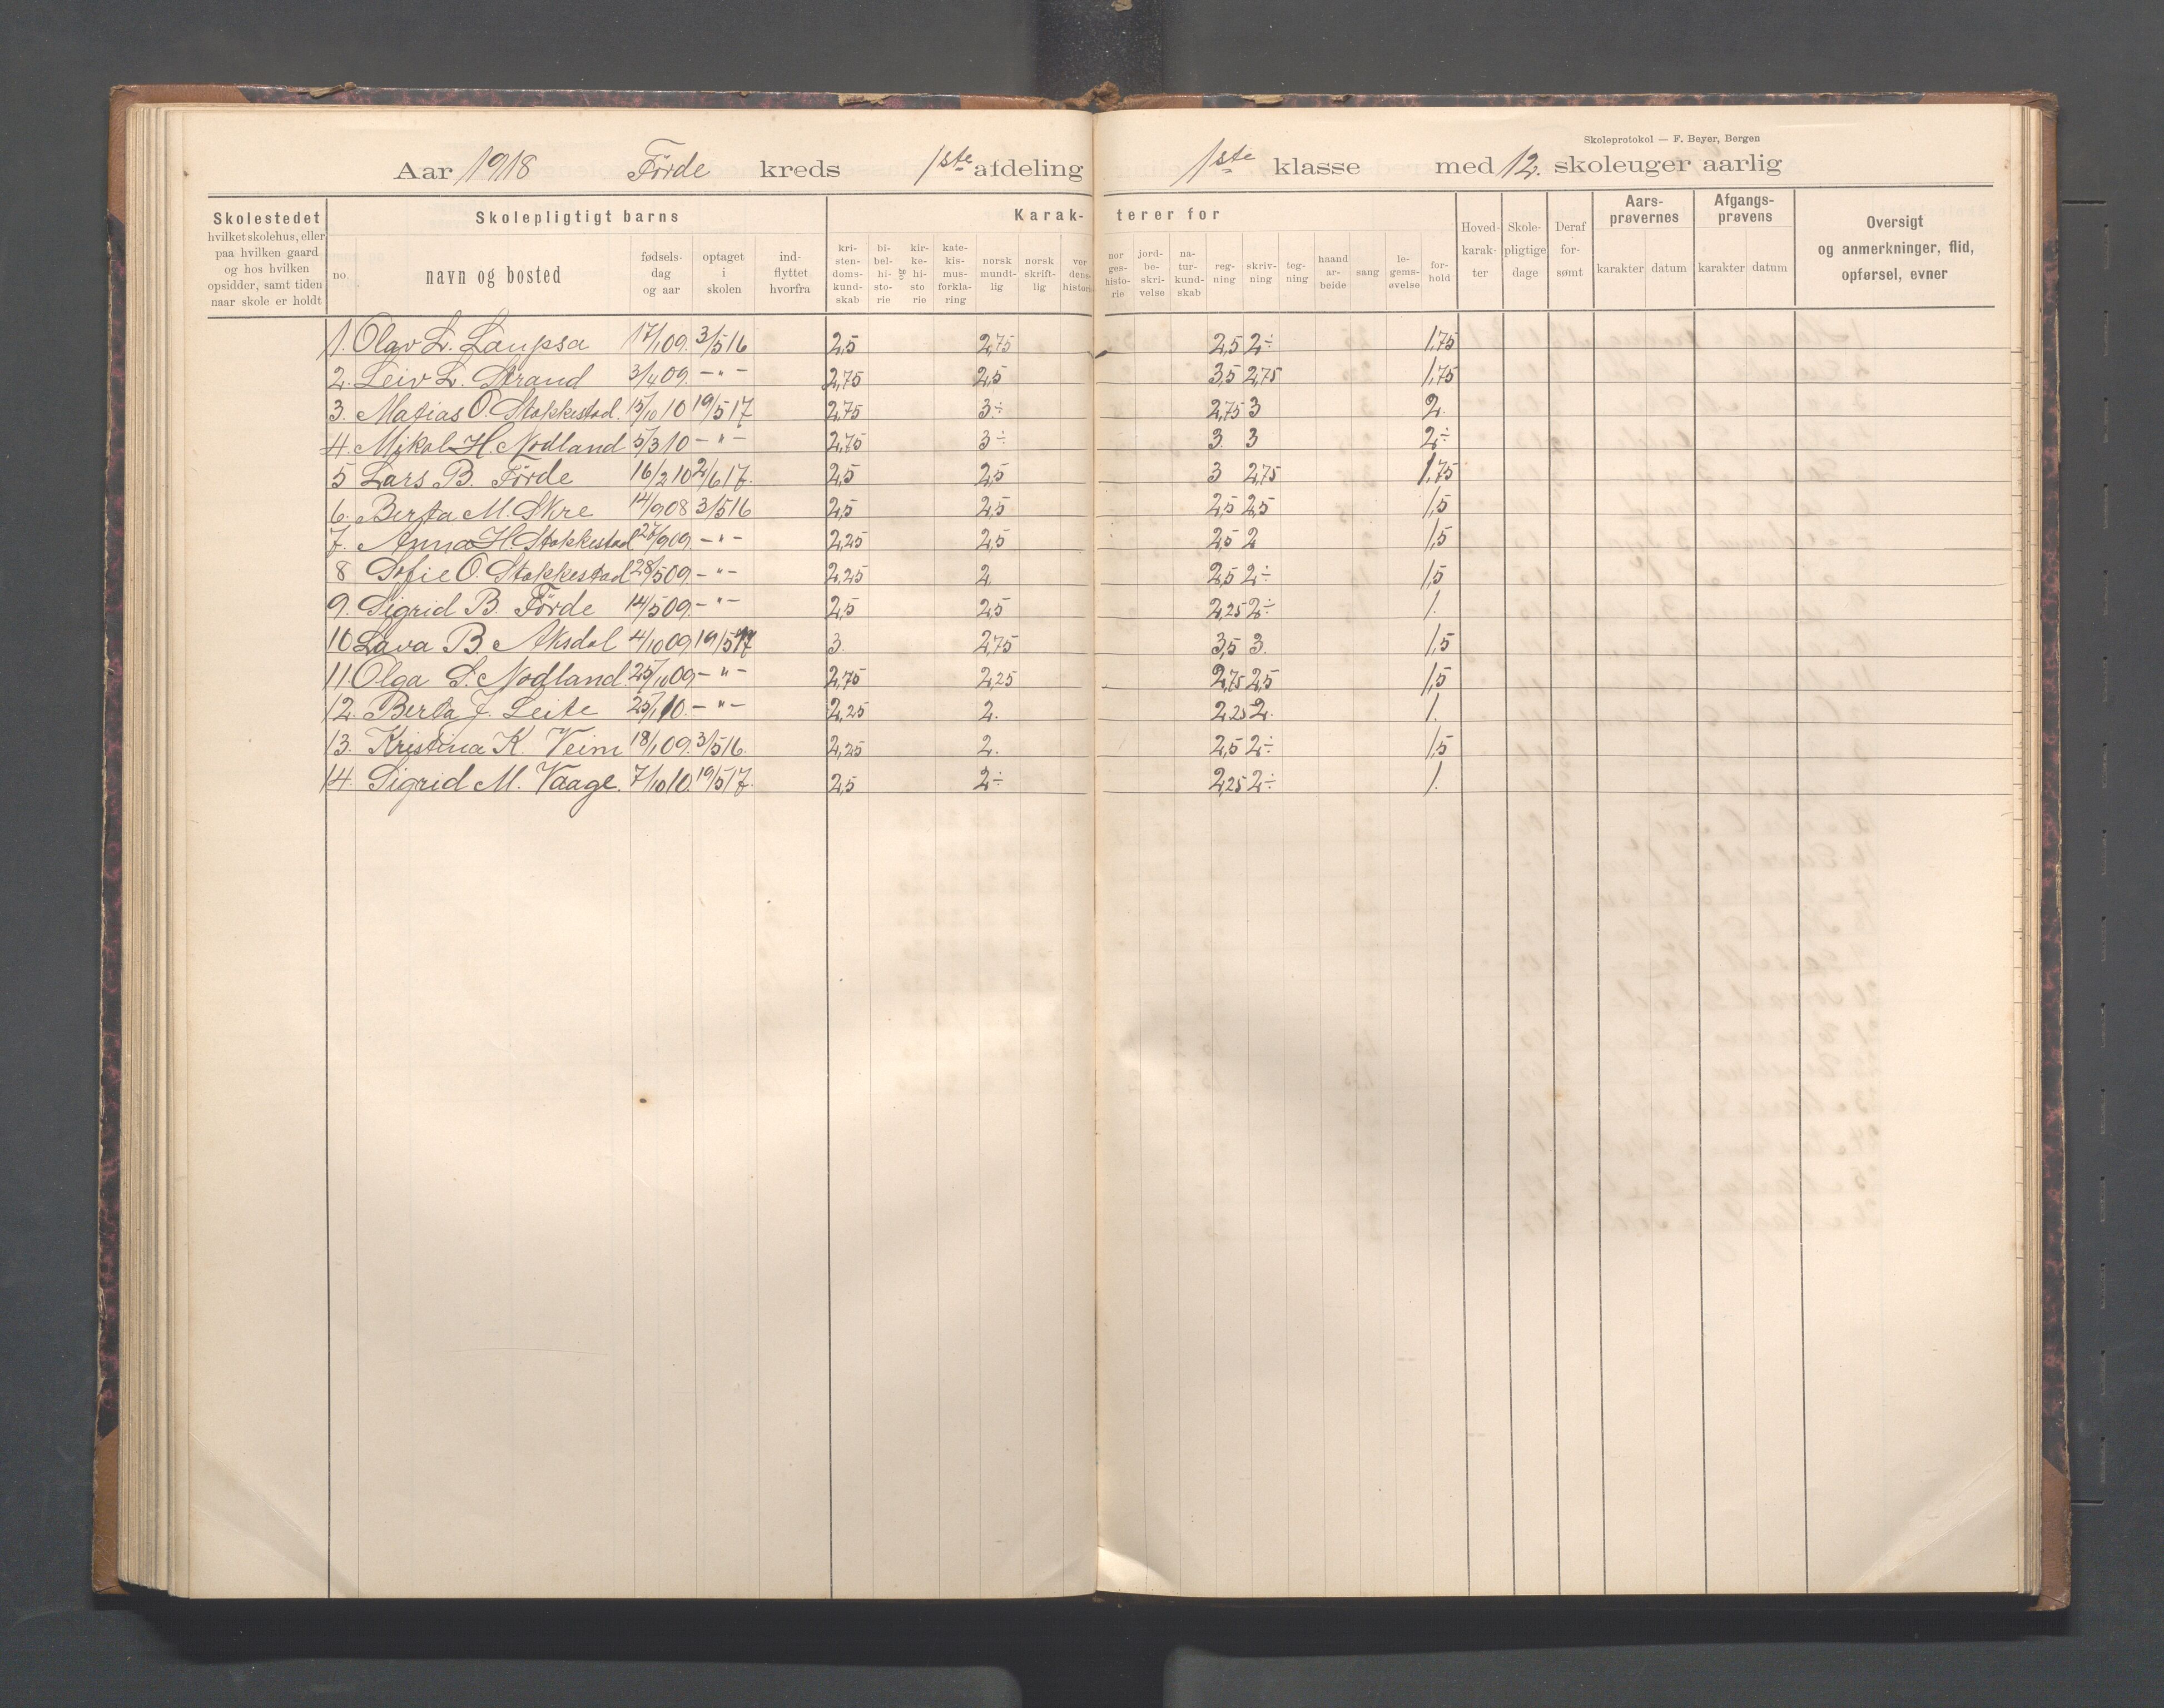 Skoleprotokol — F. Beyer, Bergen
Aar 1918 Förde kreds 1ste afdeling 1ste klasse med 12. skoleuger aarlig
Skolestedet
hvilket skolehus, eller
paa hvilken gaard
og hos hvilken
opsidder, samt tiden
naar skole er holdt
Skolepligtigt barns
no.
navn og bosted
fødsels-
dag
og aar
optaget
i
skolen
ind-
flyttet
hvorfra
Karak-
kri-
sten-
doms-
kund-
skab
bi-
bel-
hi-
sto-
rie
kir-
ke-
hi-
sto
rie
kate-
kis-
mus-
forkla-
ring
norsk
mundt-
lig
norsk
skrift-
lig
ver
dens-
histori
terer for
nor
ges-
histo-
rie
jord-
be-
skri-
velse
na-
tur-
kund-
skab
reg-
ning
skriv-
ning
teg-
ning
haand
ar-
beide
sang
le-
gems-
øvelse
for-
hold
Hoved-
karak-
ter
Skole-
pligtige
dage
Deraf
for-
sømt
Aars-
prøvernes
karakter datum
Afgangs-
prøvens
karakter datum
Oversigt
og anmerkninger, flid,
opførsel, evner
1. Olav L. Laupsa 17/1 09. 3/5 16 2,5 2,75 2,5 2÷ 1,75
2. Leiv L. Strand 3/4 09. – " – 2,75 2,5 3,5 2,75 1,75
3. Matias O. Stokkestad. 15/10 10 19/5 17 2,75 3÷ 2,75 3 2.
4. Mikal H. Nodland 5/3 10 – " – 2,75 3÷ 3. 3 2÷
5 Lars B. Förde 16/2 10 2/6 17. 2,5 2,5 3 2,75 1,75
6. Berta M. Skre 14/9 08 3/5 16 2,5 2,5 2,5 2,5 1,5
7. Anna H. Stokkestad 27/9 09. – " – 2,25 2,5 2,5 2 1,5
8 Sofie O. Stokkestad 28/5 09. – " – 2,25 2. 2,5 2÷ 1,5
9. Sigrid B. Förde 14/5 09. – " – 2,5 2,5 2,25 2÷ 1.
10 Lava B. Aksdal 4/10 09 19/5 17 3. 2,75 3,5 3. 1,5
11. Olga S. Nodland. 25/10 09 – " – 2,75 2,25 2,75 2,5 1,5
12. Berta J. Leite 25/1 10. – " – 2,25 2. 2,25 2. 1.
13. Kristina K. Veim 18/1 09. 3/5 16. 2,25 2. 2,5 2÷ 1,5
14. Sigrid M. Vaage. 7/10 10. 19/5 17. 2,5 2÷ 2,25 2÷ 1.